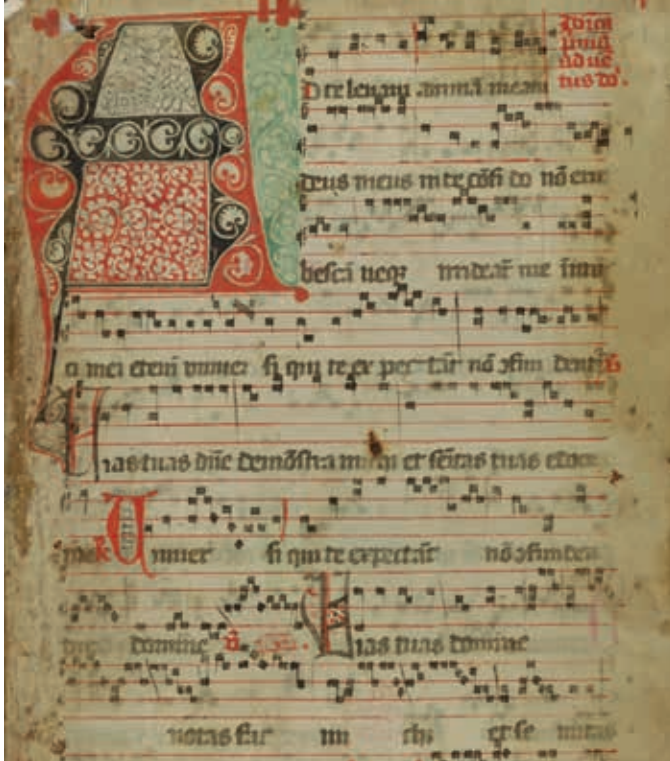 AD te leuaui animā meam
deus meus in te cōfi do nō eru
bescā neqꝫ irrideāt me inimi
ci mei eteni vniuer si qui te ex pectāt nō ꝯfun dentur V̄
Vias tuas dn̄e demōstra michi et semitas tuas edoce
me R Vniuer si qui te expectāt nō ꝯfunden
tur domine V̄ Vias tuas domine
notas fac mi chi et se mitas